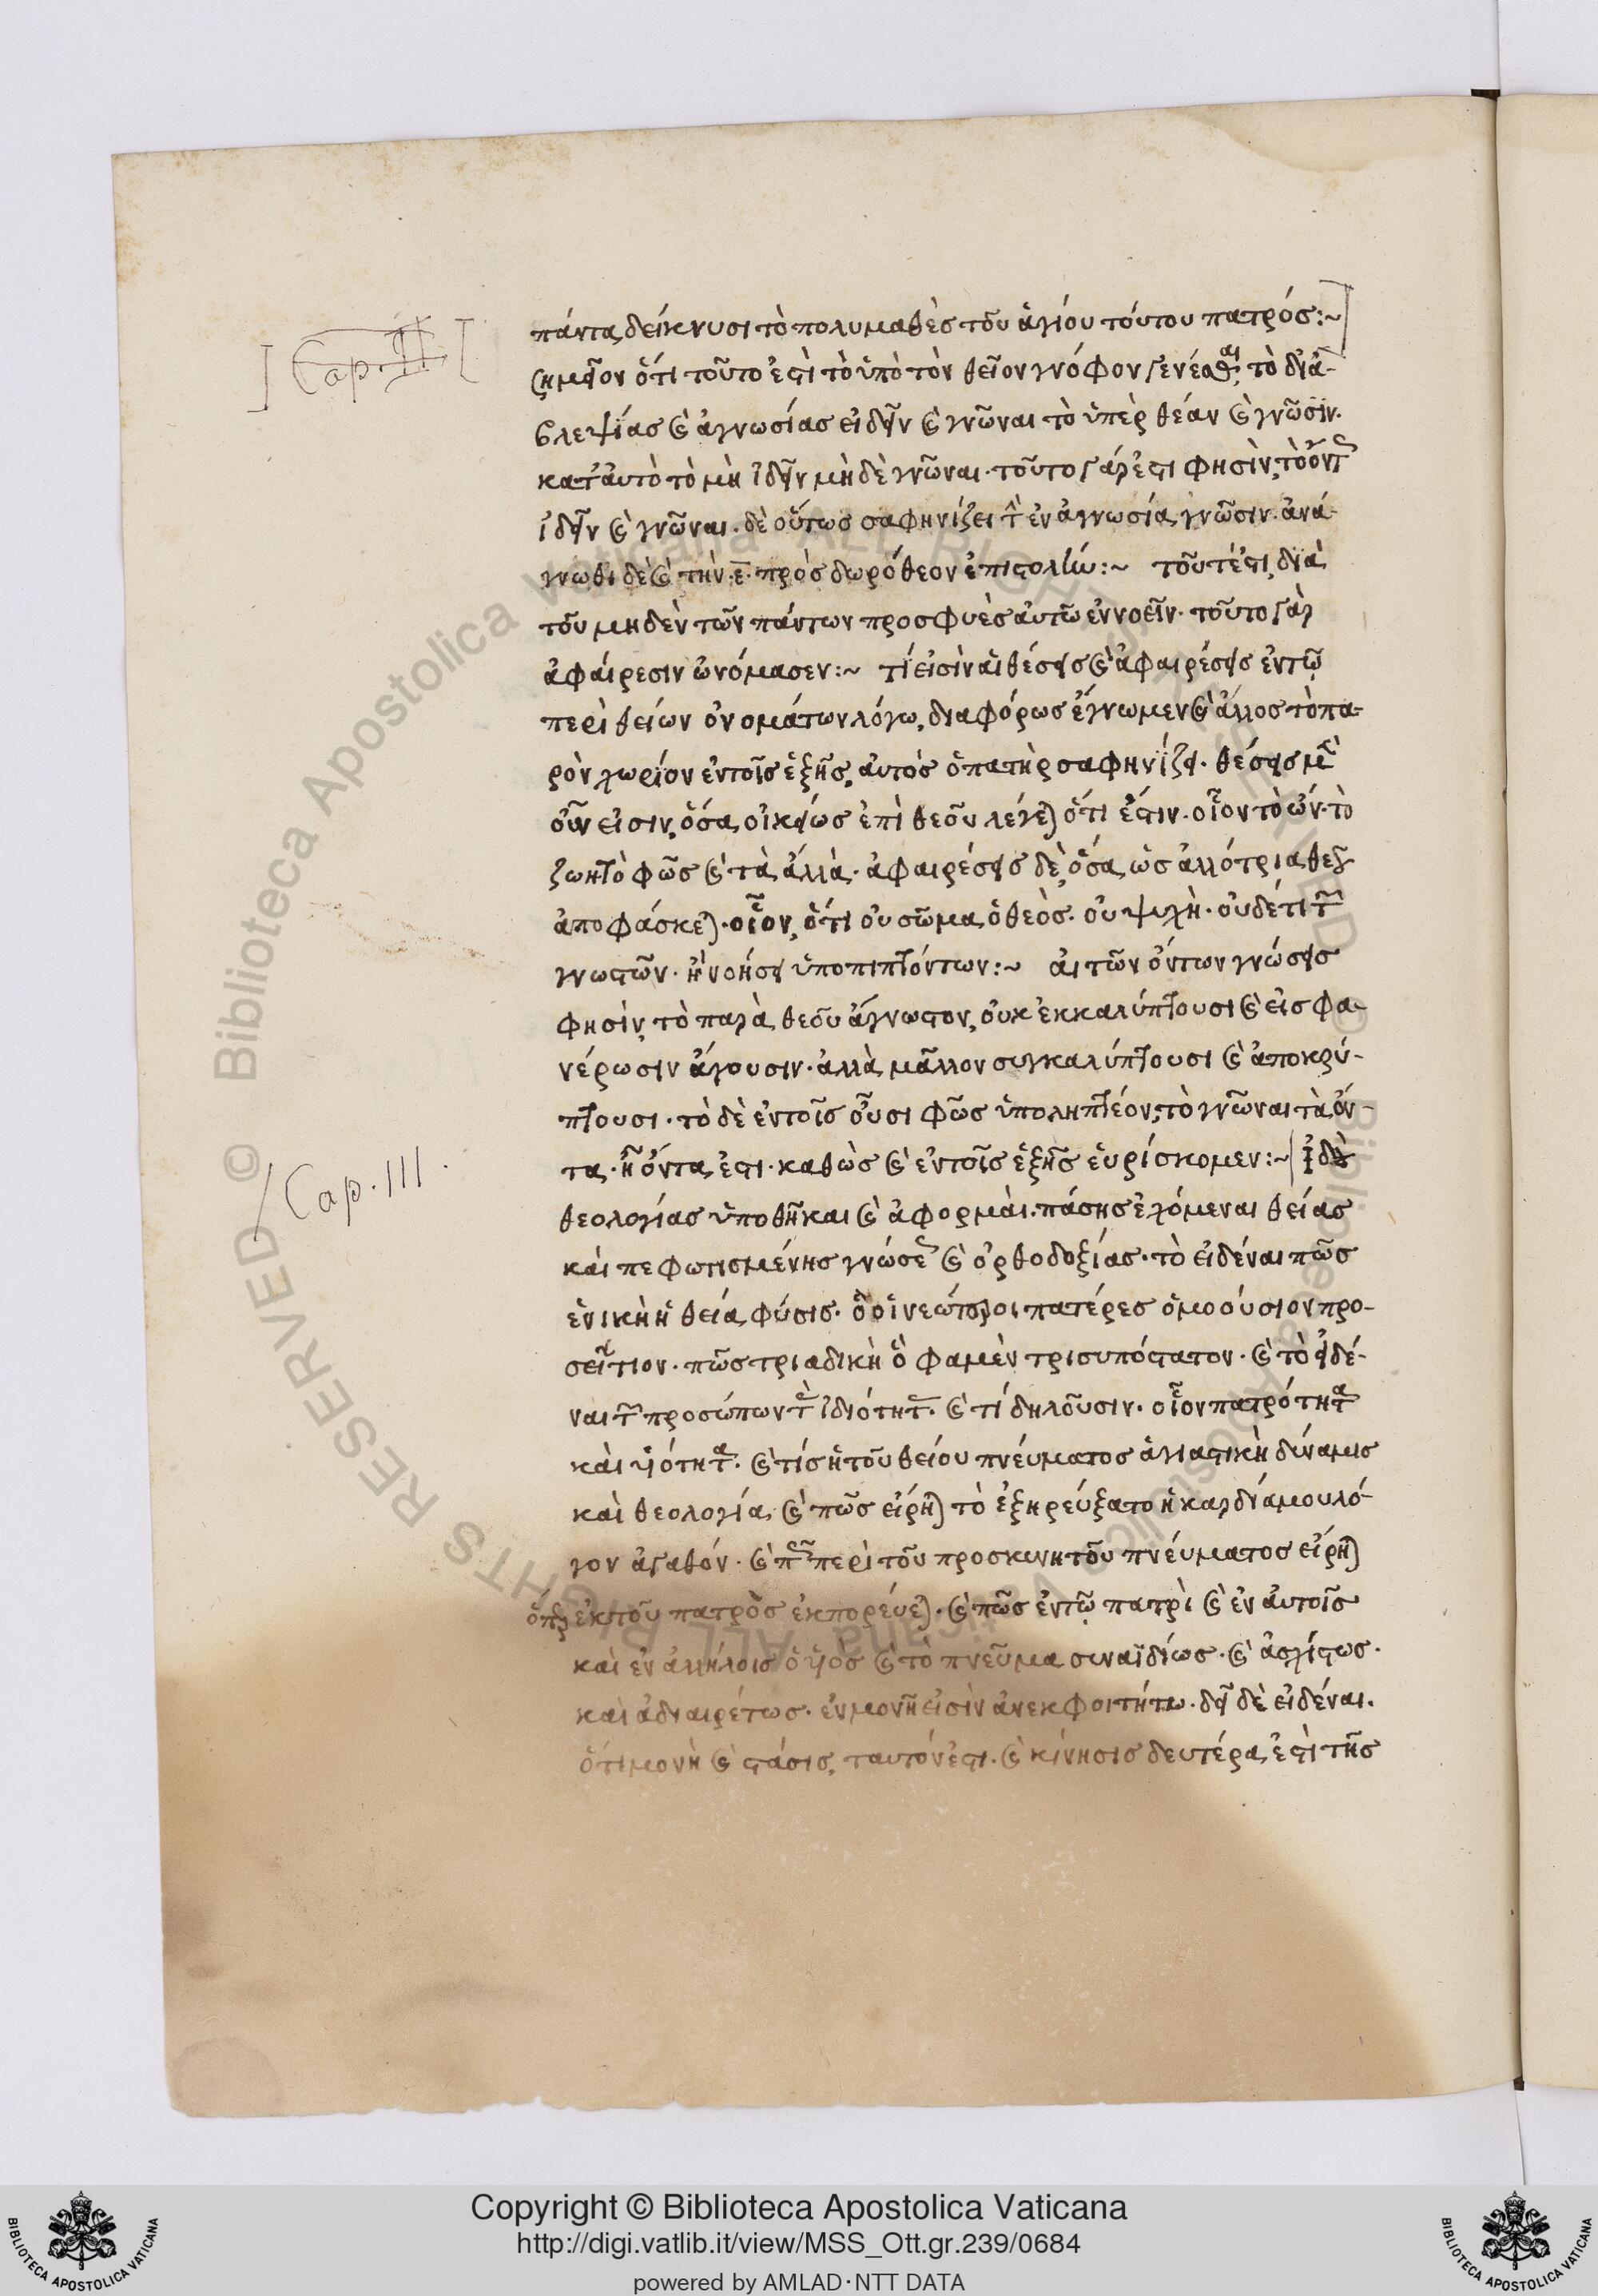 πάντα, δείκνυσι τὸ πολυμαθὲς τοῦ ἁγίου τούτου πατρός:~
] Cap. II. [
σημεῖον ὅτι τοῦτο ἐστὶ τὸ ὑπὸ τὸν θεῖον γνόφον γενέσθαι, τὸ δι' ἀ-
βλεψίας καὶ ἀγνωσίας εἰδεῖν καὶ γνῶναι τὸ ὑπὲρ θέαν καὶ γνῶσιν.
κατ' αὐτὸ τὸ μὴ ἰδεῖν μὴ δὲ γνῶναι. τοῦτο γάρ ἐστι φησὶν, τὸ ὄντως
ἰδεῖν καὶ γνῶναι. δὲ οὕτως σαφηνίζει τὴν ἐν ἀγνωσία, γνῶσιν. ἀνά-
γνωθι δὲ καὶ τὴν .ε. πρὸς δωρόθεον ἐπιστολὴν:~ τοῦτέστι, διὰ
τοῦ μηδὲν τῶν πάντων προσφυὲς αὐτῶ ἐννοεῖν. τοῦτο γὰρ
ἀφαίρεσιν ὠνόμασεν:~ τί εἰσὶν αἱ θέσεις καὶ ἀφαιρέσεις ἐν τῷ
περὶ θείων ὀνομάτων λόγω, διαφόρως ἔγνωμεν καὶ ἄλλος τὸ πα-
ρὸν χωρίον ἐν τοῖς ἑξῆς, αὐτὸς ὁ πατὴρ σαφηνίζει. θέσεις μὲν
οὖν εἰσιν, ὅσα, οἰκείως ἐπὶ θεοῦ λέγεται ὅτι ἔστιν. οἷον τὸ ὤν. τὸ
ζωὴ τὸ φῶς καὶ τὰ ἄλλα. ἀφαιρέσεις δὲ, ὅσα, ὡς ἀλλότρια θεοῦ
ἀποφάσκεται. οἷον, ὅτι οὐ σῶμα, ὁ θεὸς. οὐ ψυχὴ. οὐδέ τι τῶν
γνωστῶν. ἢ νοήσει ὑποπιπτόντων:~ αἱ τῶν ὄντων γνώσεις
φησὶν, τὸ παρὰ θεοῦ ἄγνωστον, οὐκ ἐκκαλύπτουσι καὶ εἰς φα-
νέρωσιν ἄγουσιν. ἀλλὰ, μᾶλλον συγκαλύπτουσι καὶ ἀποκρύ-
πτουσι. τὸ δὲ ἐν τοῖς οὖσι φῶς ὑποληπτέον, τὸ γνῶναι τὰ ὄν-
τα. ἢ ὄντα, ἐστι. καθὼς καὶ ἐν τοῖς ἑξῆς εὑρίσκομεν:~
/ Cap. III.
θεολογίας ὑποθῆκαι καὶ ἀφορμὰι. πάσης ἐχόμεναι θείας
καὶ πεφωτισμένης γνώσεως καὶ ὀρθοδοξίας. τὸ εἰδέναι πῶς
ἑνικὴ ἡ θεία, φύσις. ὃ οἱ νεώτεροι πατέρες ὁμοούσιον προ-
σεῖπον. πῶς τριαδικὴ ὃ φαμὲν τρισυπόστατον. καὶ τὸ εἰδέ-
ναι τῶν προσώπων τὰς ἰδιότητας. καὶ τί δηλοῦσιν. οἷον πατρότητα
καὶ υἱότητα. καὶ τίς ἡ τοῦ θείου πνεύματος ἁγιαστικὴ δύναμις
καὶ θεολογία, καὶ πῶς εἴρηται τὸ ἐξηρεύξατο ἡ καρδία μου λό-
γον ἀγαθόν. καὶ πῶς περὶ τοῦ προσκυνητοῦ πνεύματος εἴρηται
ὅπερ ἐκ τοῦ πατρὸς ἐκπορεύεται. καὶ πῶς ἐν τῷ πατρὶ καὶ ἐν αὐτοῖς
καὶ ἐν ἀλλήλοις ὁ υἱὸς καὶ τὸ πνεῦμα συναϊδίως. καὶ ἀχρίστως.
καὶ ἀδιαιρέτως. ἐν μονῆ εἰσὶν ἀνεκφοιτήτω. δεῖ δὲ εἰδέναι.
ὅτι μονὴ καὶ στάσις, ταυτόν ἐστι. καὶ κίνησις δευτέρα, ἐστὶ τῆς
Biblioteca Apostolica Vaticana ALL RIGHTS RESERVED ©
Copyright © Biblioteca Apostolica Vaticana
http://digi.vatlib.it/view/MSS_Ott.gr.239/0684
powered by AMLAD·NTT DATA
BIBLIOTECA APOSTOLICA VATICANA
BIBLIOTECA APOSTOLICA VATICANA